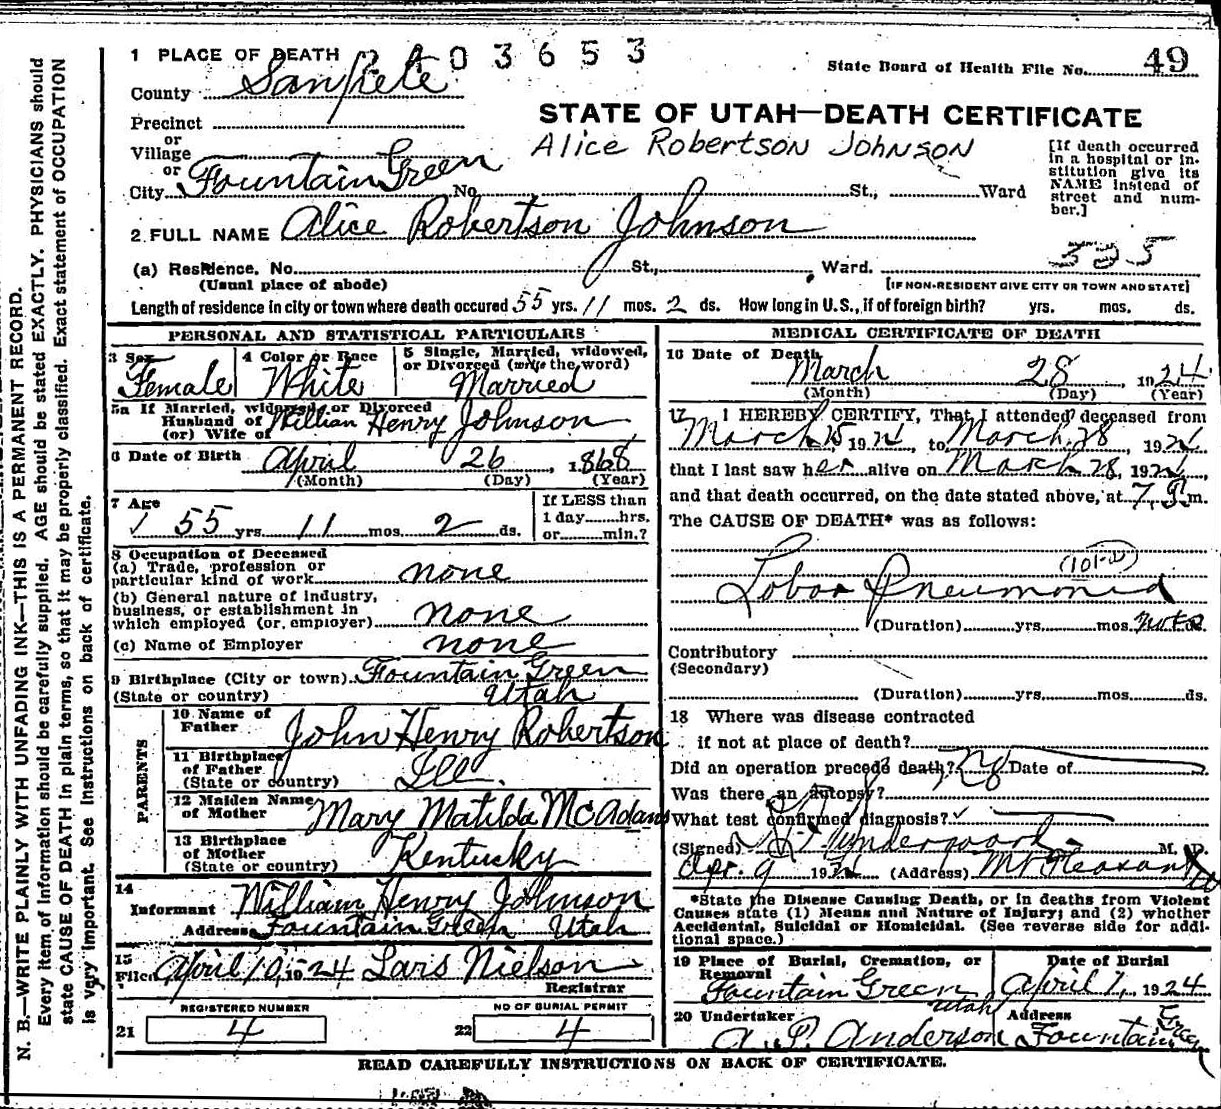 1 PLACE OF DEATH 2 4 0 3 6 5 3
State Board of Health File No. 49
County Sanpete
STATE OF UTAH—DEATH CERTIFICATE
Precinct
or
Village
or
City Fountain Green No. St., Ward
Alice Robertson Johnson
[If death occurred in a hospital or institution give its NAME instead of street and number.]
2. FULL NAME Alice Robertson Johnson
(a) Residence. No. St., Ward.
(Usual place of abode)
[IF NON-RESIDENT GIVE CITY OR TOWN AND STATE]
Length of residence in city or town where death occured 55 yrs. 11 mos. 2 ds. How long in U.S., if of foreign birth? yrs. mos. ds.
PERSONAL AND STATISTICAL PARTICULARS
3 Sex Female
4 Color or Race White
5 Single, Married, widowed, or Divorced (write the word) Married
5a If Married, widowed, or Divorced
Husband of
(or) Wife of William Henry Johnson
6 Date of Birth April 26, 1868
(Month) (Day) (Year)
7 Age 55 yrs. 11 mos. 2 ds.
If LESS than
1 day hrs.
or min.?
8 Occupation of Deceased
(a) Trade, profession or
particular kind of work none
(b) General nature of industry,
business, or establishment in
which employed (or employer) none
(c) Name of Employer none
9 Birthplace (City or town) Fountain Green
(State or country) Utah
PARENTS
10 Name of
Father John Henry Robertson
11 Birthplace
of Father
(State or country) Ill.
12 Maiden Name
of Mother Mary Matilda McAdams
13 Birthplace
of Mother
(State or country) Kentucky
14
Informant William Henry Johnson
Address Fountain Green Utah
15
Filed April 10, 1924 Lars Nielson
Registrar
REGISTERED NUMBER
21 4
NO OF BURIAL PERMIT
22 4
MEDICAL CERTIFICATE OF DEATH
16 Date of Death March 28, 1924
(Month) (Day) (Year)
17 I HEREBY CERTIFY, That I attended deceased from
March 15 1924 to March 28 1924
that I last saw her alive on March 28, 1924,
and that death occurred, on the date stated above, at 7 P. m.
The CAUSE OF DEATH* was as follows:
Lobar Pneumonia
(Duration) yrs. mos. ds.
Contributory
(Secondary)
(Duration) yrs. mos. ds.
18 Where was disease contracted
if not at place of death?
Did an operation precede death? No Date of
Was there an autopsy?
What test confirmed diagnosis?
(Signed) M. D.
Apr. 9 1924 (Address) Mt Pleasant
*State the Disease Causing Death, or in deaths from Violent
Causes state (1) Means and Nature of Injury; and (2) whether
Accidental, Suicidal or Homicidal. (See reverse side for addi-
tional space.)
19 Place of Burial, Cremation, or
Removal Fountain Green Utah
Date of Burial
April 1, 1924
20 Undertaker A. P. Anderson
Address Fountain Green
READ CAREFULLY INSTRUCTIONS ON BACK OF CERTIFICATE.
N. B.—WRITE PLAINLY WITH UNFADING INK—THIS IS A PERMANENT RECORD.
Every item of information should be carefully supplied. AGE should be stated EXACTLY. PHYSICIANS should
state CAUSE OF DEATH in plain terms, so that it may be properly classified. Exact statement of OCCUPATION
is very important. See Instructions on back of certificate.